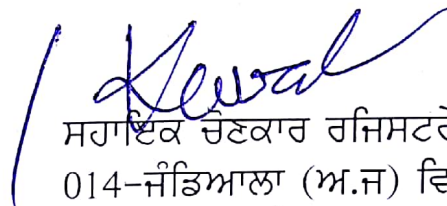 Kewal
ਸਹਾਇਕ ਚੋਣਕਾਰ ਰਜਿਸਟਰੇ
014-ਜੰਡਿਆਲਾ (ਅ.ਜ) ਵਿ